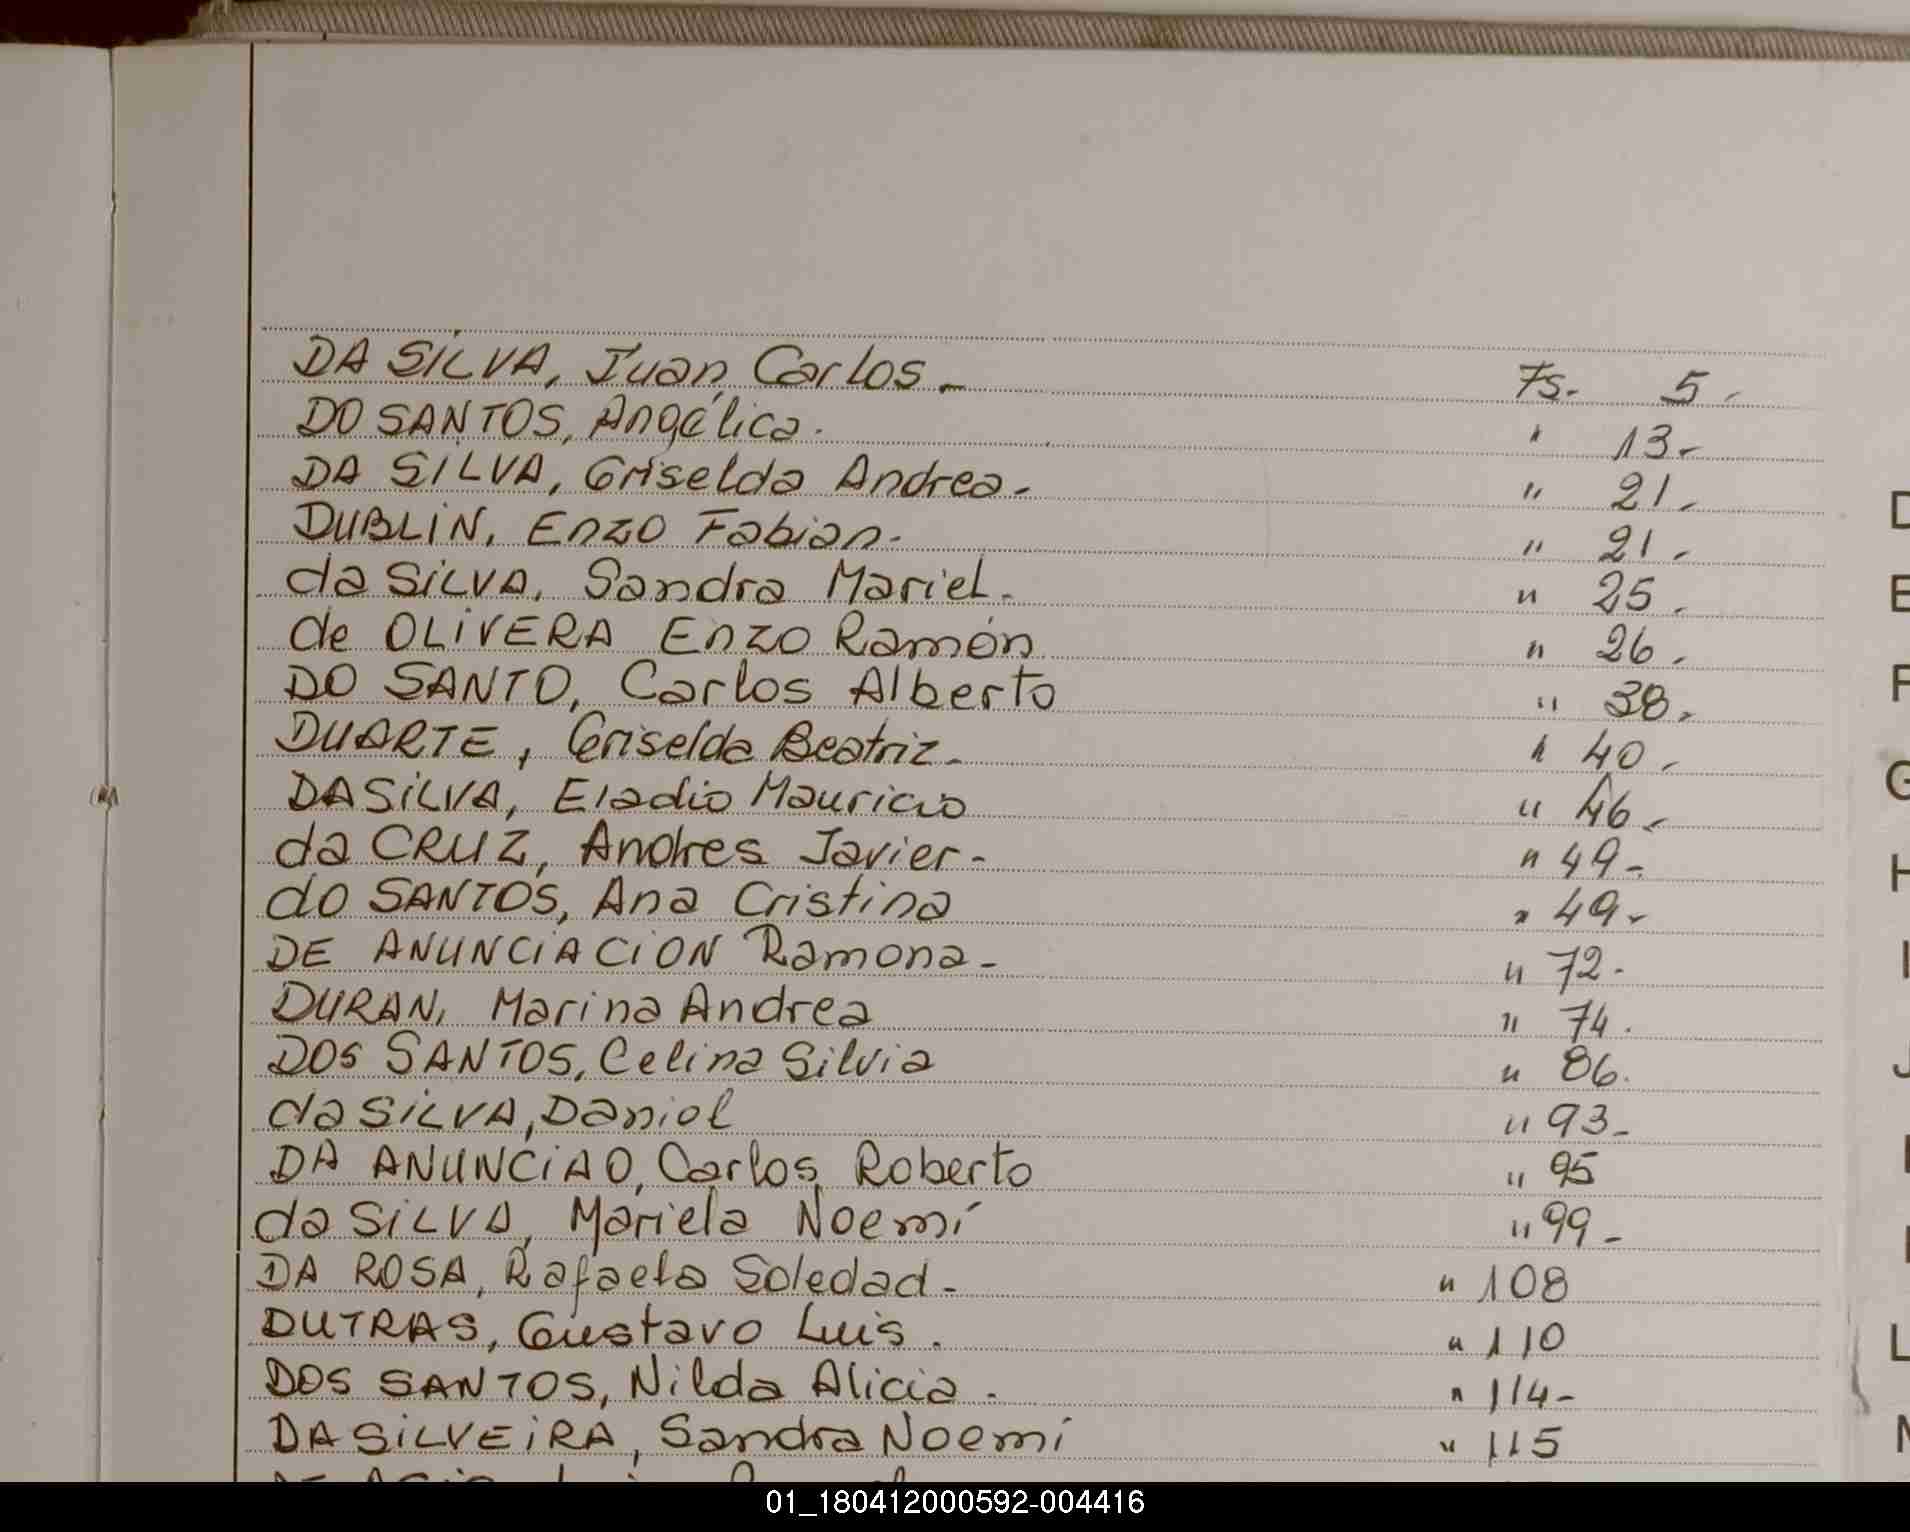 DA SILVA, Juan Carlos.- Fs.- 5.-
DO SANTOS, Angélica. " 13.-
DA SILVA, Griselda Andrea.- " 21.-
DUBLIN, Enzo Fabian.- " 21.-
da SILVA, Sandra Mariel.- " 25.-
de OLIVERA Enzo Ramón " 26.-
DO SANTO, Carlos Alberto " 38.-
DUARTE, Griselda Beatriz.- " 40.-
DA SILVA, Eladio Mauricio " 46.-
da CRUZ, Andres Javier.- " 49.-
do SANTOS, Ana Cristina " 49.-
DE ANUNCIACION Ramona.- " 72.-
DURAN, Marina Andrea " 74.
DOS SANTOS, Celina Silvia " 86.
da SILVA, Daniel " 93.-
DA ANUNCIAO, Carlos Roberto " 95
da SILVA, Mariela Noemí " 99.-
DA ROSA, Rafaela Soledad.- " 108
DUTRAS, Gustavo Luis. " 110
DOS SANTOS, Nilda Alicia.- " 114-
DA SILVEIRA, Sandra Noemí " 115
D
E
F
G
H
I
J
L
01_180412000592-004416